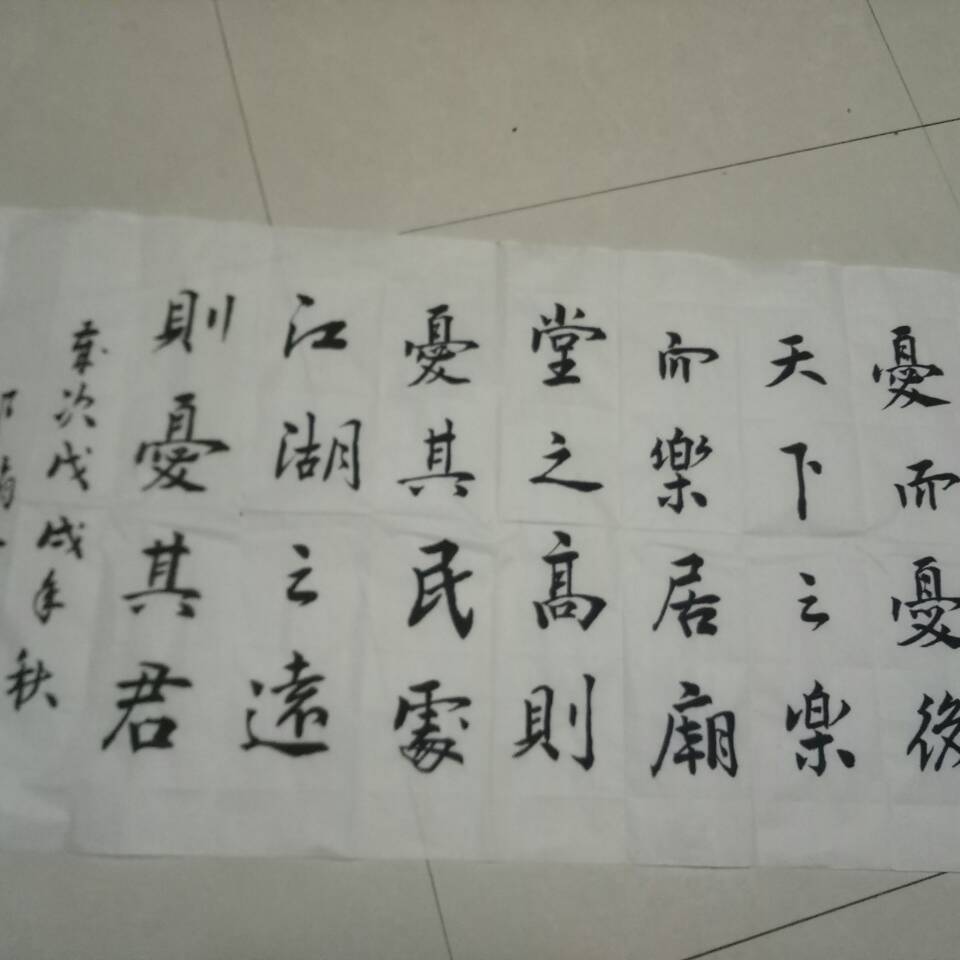 憂而憂後
天下之楽
而樂居廟
堂之高則
憂其民處
江湖之遠
則憂其君
歲次戊戌年秋